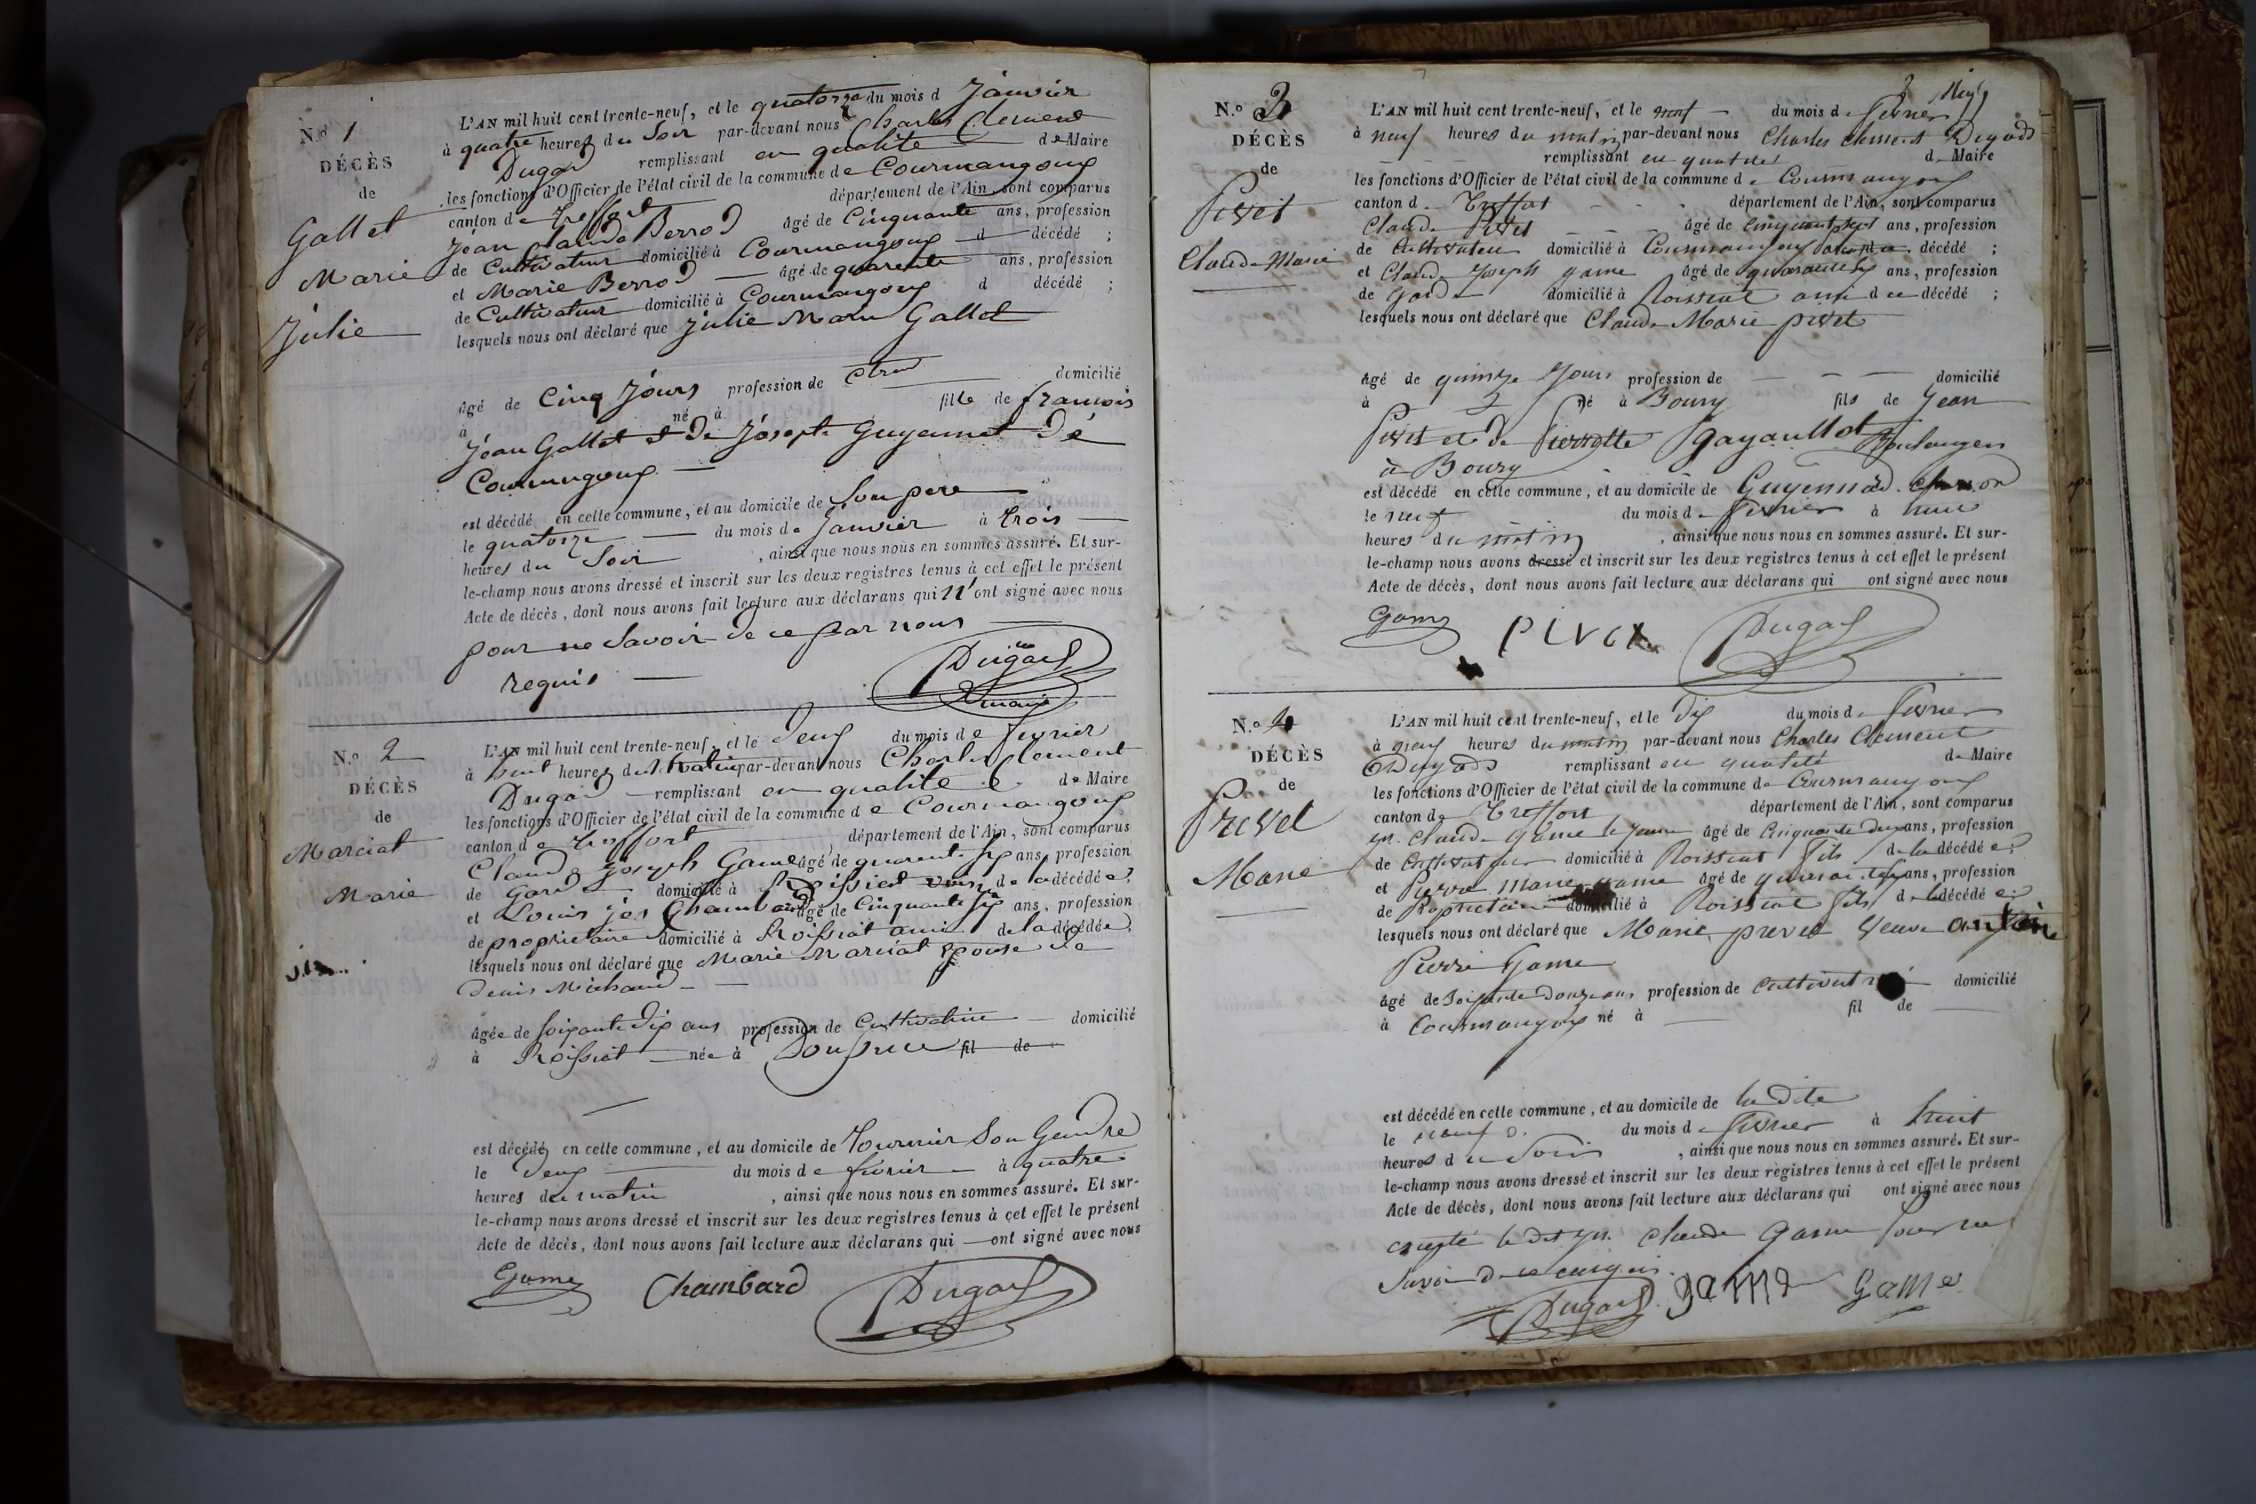 N.º 1
DÉCÈS
de
Gallet
Marie
Julie
L'AN mil huit cent trente-neuf, et le quatorze du mois d Janvier
à quatre heures du Soir par-devant nous Charles Clement
Dugad remplissant en qualité de Maire
les fonctions d'Officier de l'état civil de la commune de Courmangoux
canton de Treffort département de l'Ain, sont comparus
Jean Claude Berrod âgé de Cinquante ans, profession
de Cultivateur domicilié à Courmangoux d décédé ;
et Marie Berrod âgé de quarente ans, profession
de Cultivateur domicilié à Courmangoux d décédé ;
lesquels nous ont déclaré que Julie Marie Gallet
âgé de Cinq Jours profession de domicilié
à né à fille de francois
Jean Gallet et de Josepte Guyennet de
Courmangoux
est décédé en cette commune, et au domicile de Son pere
le quatorze du mois de Janvier à trois
heures du Soir , ainsi que nous nous en sommes assuré. Et sur-
le-champ nous avons dressé et inscrit sur les deux registres tenus à cet effet le présent
Acte de décès, dont nous avons fait lecture aux déclarans qui n'ont signé avec nous
pour ne Savoir de ce par nous
requis
Dugad
maire
N.º 2
DÉCÈS
de
Marciat
Marie
L'AN mil huit cent trente-neuf, et le deux du mois de fevrier
à huit heures du Matin par-devant nous Charles Clement
Dugad remplissant en qualité de Maire
les fonctions d'Officier de l'état civil de la commune de Courmangoux
canton de Treffort département de l'Ain, sont comparus
Claude Joseph Game âgé de quarente Six ans, profession
de Garde domicilié à Roissiat voisin de la décédée ;
et Louis jos Chambard âgé de Cinquante Six ans, profession
de proprietaire domicilié à Roissiat ami de la décédée ;
lesquels nous ont déclaré que Marie Marciat Epouse de
Denis Michaud
âgée de Soixante Dix ans profession de Cultivatrice domicilié
à Roissiat née à fil de
est décédée en cette commune, et au domicile de Tournier Son Gendre
le deux du mois de fevrier à quatre
heures du matin , ainsi que nous nous en sommes assuré. Et sur-
le-champ nous avons dressé et inscrit sur les deux registres tenus à cet effet le présent
Acte de décès, dont nous avons fait lecture aux déclarans qui ont signé avec nous
Game Chambard Dugad
N.º 3
DÉCÈS
de
Pivet
Claude Marie
L'AN mil huit cent trente-neuf, et le neuf du mois de fevrier
à neuf heures du matin par-devant nous Charles Clement Dugad
remplissant en qualité de Maire
les fonctions d'Officier de l'état civil de la commune de Courmangoux
canton de Treffort département de l'Ain, sont comparus
Claude Pivet âgé de ans, profession
de Cultivateur domicilié à Courmangoux décédé ;
et Claude Joseph game âgé de quarante six ans, profession
de Garde domicilié à Roissiat ami du décédé ;
lesquels nous ont déclaré que Claude Marie pivet
âgé de quinze Jours profession de domicilié
à né à Bourg fils de Jean
Pivet et de Pierrette Boulangers
à Bourg
est décédé en cette commune, et au domicile de
le neuf du mois de fevrier à
heures du matin , ainsi que nous nous en sommes assuré. Et sur-
le-champ nous avons dressé et inscrit sur les deux registres tenus à cet effet le présent
Acte de décès, dont nous avons fait lecture aux déclarans qui ont signé avec nous
Game Pivet Dugad
N.º 4
DÉCÈS
de
Prevet
Marie
L'AN mil huit cent trente-neuf, et le dix du mois de fevrier
à neuf heures du matin par-devant nous Charles Clement
Dugad remplissant en qualité de Maire
les fonctions d'Officier de l'état civil de la commune de Courmangoux
canton de Treffort département de l'Ain, sont comparus
Claude game le jeune âgé de Cinquante deux ans, profession
de Cultivateur domicilié à Roissiat fils de la décédée ;
et Pierre Marie game âgé de ans, profession
de Proprietaire domicilié à Roissiat fils de la décédée ;
lesquels nous ont déclaré que Marie prevet Veuve antoine
Pierre Game
âgé de Soixante Douze ans profession de domicilié
à Courmangoux né à fil de
est décédé en cette commune, et au domicile de la dite
le neuf du mois de fevrier à huit
heures du Soir , ainsi que nous nous en sommes assuré. Et sur-
le-champ nous avons dressé et inscrit sur les deux registres tenus à cet effet le présent
Acte de décès, dont nous avons fait lecture aux déclarans qui ont signé avec nous
excepté le dit Claude Game pour ne
Savoir de ce enquis.
Dugad game Game